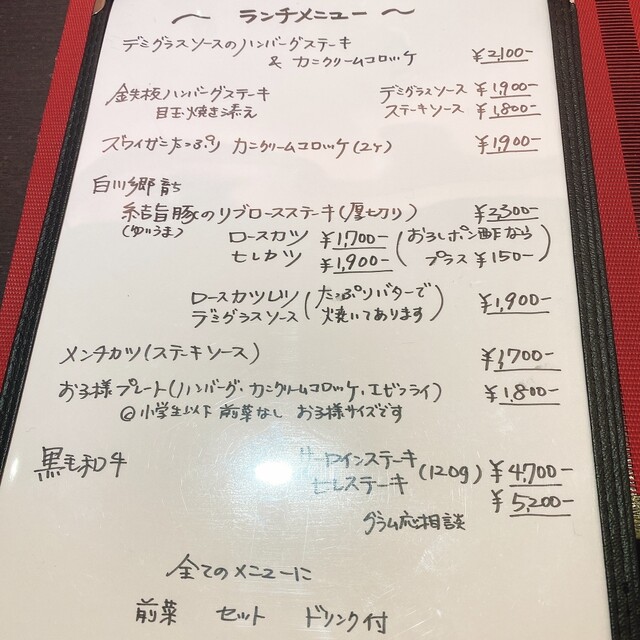 〜 ランチメニュー 〜
デミグラスソースのハンバーグステーキ
& カニクリームコロッケ ¥2,100-
鉄板ハンバーグステーキ デミグラスソース ¥1,900-
目玉焼き添え ステーキソース ¥1,800-
ズワイガニたっぷり カニクリームコロッケ(2ヶ) ¥1,900-
白川郷育ち
結旨豚のリブロースステーキ(厚切り) ¥2,300-
(ゆいうま) ロースカツ ¥1,700- (おろしポン酢なら
ヒレカツ ¥1,900- プラス ¥150-)
ロースカツレツ (たっぷりバターで ¥1,900-
デミグラスソース 焼いてあります)
メンチカツ(ステーキソース) ¥1,700-
お子様プレート(ハンバーグ、カニクリームコロッケ、エビフライ) ¥1,800-
◎小学生以下 前菜なし お子様サイズです
黒毛和牛 サーロインステーキ (120g) ¥4,700-
ヒレステーキ ¥5,200-
グラム応相談
全てのメニューに
前菜 セット ドリンク付